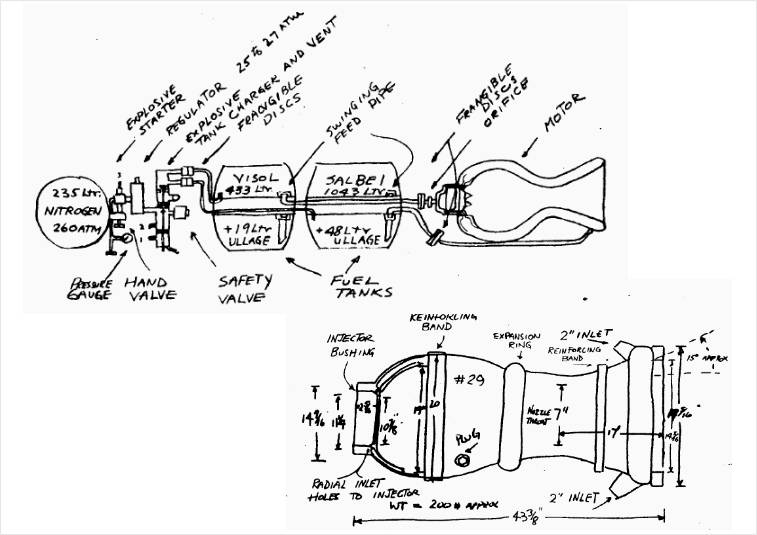 EXPLOSIVE
STARTER
REGULATOR 25 TO 27 ATM
EXPLOSIVE
TANK CHARGER AND VENT
FRANGIBLE
DISCS
SWINGING
FEED PIPE
FRANGIBLE
DISCS
ORIFICE
MOTOR
235 Ltr.
NITROGEN
260 ATM
VISOL
433 Ltr.
+19 Ltr
ULLAGE
SALBEI
1043 Ltr.
+48 Ltr
ULLAGE
PRESSURE
GAUGE
HAND
VALVE
SAFETY
VALVE
FUEL
TANKS
REINFORCING
BAND
INJECTOR
BUSHING
EXPANSION
RING
2" INLET
REINFORCING
BAND
15° APPROX
#29
20
NOZZLE
THROAT
7"
17"
PLUG
RADIAL INLET
HOLES TO INJECTOR
WT = 200 # APPROX
2" INLET
43 3/8"